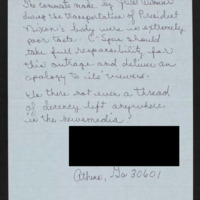 The comments made by your
during the transportation of President
Nixon's body were in extremely
poor taste. C-Span should
take full responsibility for
this outrage and deliver an
apology to its' viewers.
Is there not even a thread
of decency left anywhere
in the newsmedia?
Athens, Ga 30601